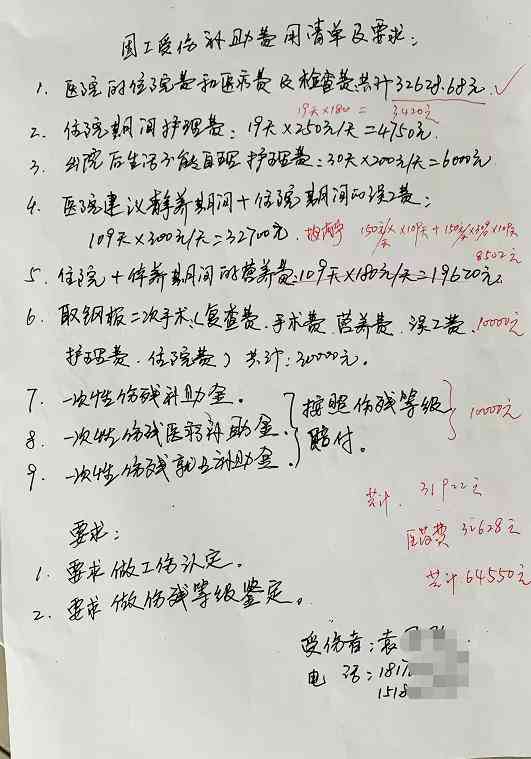 因工受伤补助费用清单及要求：
1. 医院的住院费和医疗费及检查费共计32628.68元 ✓
19天×180 = 3420元
2. 住院期间护理费：19天×250元/天=4750元.
3. 出院后生活不能自理护理费：30天×200元/天=6000元
4. 医院建议静养期间+住院期间的误工费：
109天×300元/天=32700元. 150元/天×109天+150元/天
8502元
5. 住院+休养期间的营养费：109天×180元/天=19620元
6. 取钢板二次手术（复查费.手术费.营养费.误工费. 10000元
护理费.住院费）共计：30000元.
7. 一次性伤残补助金.
8. 一次性伤残医疗补助金. 按照伤残等级 10000元
9. 一次性伤残就业补助金. 赔付.
共计. 31922元
医药费 32628元
共计64550元
要求：
1. 要求做工伤认定.
2. 要求做伤残等级鉴定.
受伤者：袁
电 话：1817
1518